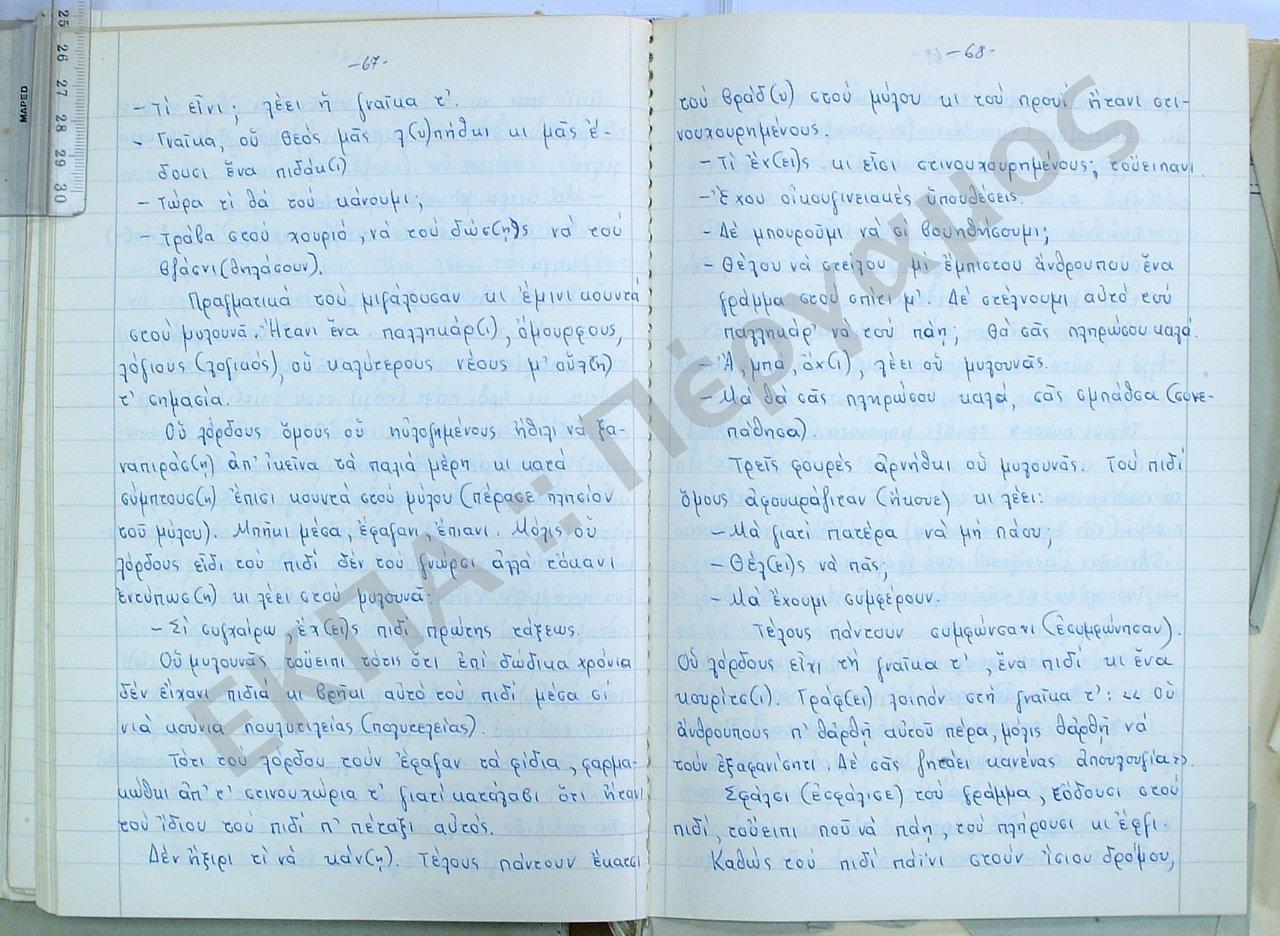 -67-
- Τί εἶνι; λέει ἡ γναῖκα τ'.
- Γναῖκα, οὗ θεός μᾶς λ(υ)πήθκι κι μᾶς ἔ-
δουσι ἕνα πιδάκ(ι)
- Τώρα τί θά τού κάνουμι;
Τράβα στού χουριό, νά τού δώσ(ῃ)ς νά τού
βζάσνι (θηλάσουν).
Πραγματικά τού μιγάλουσαν κι ἔμινι κουντά
στού μυλουνᾶ. Ἤτανι ἕνα παλληκάρ(ι), ὅμουρφους,
λόγιους (λογικός), οὗ καλύτερους νέους μ' οὕλ(η)
τ' σημασία.
Οὗ λόρδους ὅμους οὗ πυλοζημένους ἤθιλι νά ξα-
ναπιράσ(η) ἀπ' ἰκεῖνα τά παλιά μέρη κι κατά
σύμπτουσ(η) ἔπισι κουντά στού μύλου (πέρασε πλησίον
τοῦ μύλου). Μπῆκι μέσα, ἔφαγανι, ἔπιανι. Μόλις οὗ
λόρδους εἶδι τού πιδί δέν τού γνώρσι ἀλλά τὄκανι
ἐντύπωσ(η) κι λέει στού μυλουνᾶ:
- Σί συγχαίρω, ἔχ(ει)ς πιδί πρώτης τάξεως.
Οὗ μυλουνᾶς τοὔειπι τότις ὅτι ἐπί δώδικα χρόνια
δέν εἴχανι πιδιά κι βρῆκι αὐτό τού πιδί μέσα σί
νιά κούνια πουλυτιλείας (πολυτελείας).
Τότι τού λόρδου τούν ἔφαγαν τά φίδια, φαρμα-
κώθκι ἀπ' τ' στινουχώρια τ' γιατί κατάλαβι ὅτι ἤτανι
τού ἴδιου τού πιδί π' πέταξι αὐτός.
Δέν ἤξιρι τί νά κάν(ῃ). Τέλους πάντουν ἔκατσι
-68-
τού βράδ(υ) στού μύλου κι τού προυί ἤτανι στι-
νουχουρημένους.
- Τί ἔχ(ει)ς κι εἶσι στινουχουρημένους; τοὔειπανι.
- Ἔχου οἰκουγινειακές ὑπουθέσεις.
- Δέ μπουροῦμι νά σι βουηθήσουμι;
- Θέλου νά στείλου μί ἔμπιστου ἄνθρουπου ἕνα
γράμμα στού σπίτι μ'. Δέ στέλνουμι αὐτό τού
παλληκάρ' νά τού πάῃ; θά σᾶς πληρώσου καλά.
- Ἄ, μπά, ὄχ(ι), λέει οὗ μυλουνᾶς.
- Μά θά σᾶς πληρώσου καλά, σᾶς σμπάθσα (συνε-
πάθησα).
Τρεῖς φουρές ἀρνήθκι οὗ μυλουνᾶς. Τού πιδί
ὅμους ἀφουκράζιταν (ἤκουε) κι λέει:
- Μά γιατί πατέρα νά μή πάου;
- Θέλ(ει)ς νά πᾶς;
- Μά ἔχουμι συμφέρουν.
Τέλους πάντουν συμφώνσανι (ἐσυμφώνησαν).
Οὗ λόρδους εἶχι τή γναῖκα τ', ἕνα πιδί κι ἕνα
κουρίτσ(ι). Γράφ(ει) λοιπόν στή γναῖκα τ': «Οὗ
ἄνθρουπους π' θάρθῃ αὐτοῦ πέρα, μόλις θάρθῃ νά
τούν ἐξαφανίσητι. Δέ σᾶς ζητάει κανένας ἀπουλουγία».
Σφάλσι (ἐσφάλισε) τού γράμμα, τὄδουσι στού
πιδί, τοὔειπι ποῦ νά πάῃ, τού πλήρουσι κι ἔφγι.
Καθώς τού πιδί πάϊνι στούν ἴσιου δρόμου,
25 26 27 28 29 30
MAPED
ΕΚΠΑ :: Πέργαμος